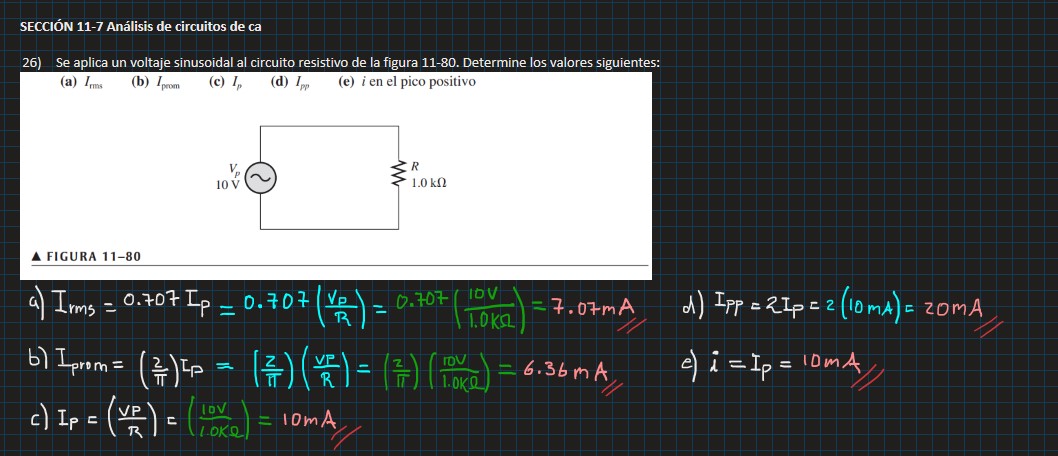 SECCIÓN 11-7 Análisis de circuitos de ca
26) Se aplica un voltaje sinusoidal al circuito resistivo de la figura 11-80. Determine los valores siguientes:
(a) Irms (b) Iprom (c) Ip (d) Ipp (e) i en el pico positivo
Vp
10 V
R
1.0 kΩ
▲ FIGURA 11–80
a) Irms = 0.707 Ip = 0.707 (Vp/R) = 0.707 (10V/1.0KΩ) = 7.07mA
d) IPP = 2Ip = 2(10mA) = 20mA
b) Iprom = (2/π)Ip = (2/π)(VP/R) = (2/π)(10V/1.0KΩ) = 6.36mA
e) i = Ip = 10mA
c) Ip = (VP/R) = (10V/1.0KΩ) = 10mA